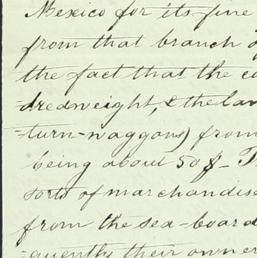 Mexico for its fine
from that branch
the fact that the
dredweight, & the
turn-waggons) from
being about 50$ -
sorts of marchandise
from the sea-board
quently their owner